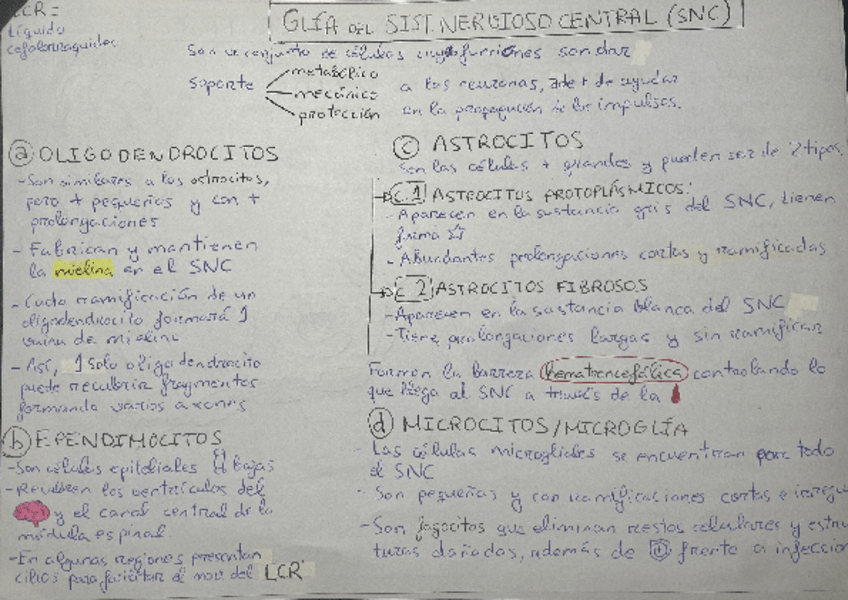 LCR =
Líquido
cefalorraquídeo
GLÍA DEL SIST. NERVIOSO CENTRAL (SNC)
Son un conjunto de células cuyas funciones son dar
soporte
metabólico
mecánico
protección
a las neuronas, además de ayudar
en la propagación de los impulsos.
a OLIGODENDROCITOS
- Son similares a los astrocitos,
pero + pequeños y con +
prolongaciones
- Fabrican y mantienen
la mielina en el SNC
- Cada ramificación de un
oligodendrocito formará 1
vaina de mielina
- Así, 1 solo oligodendrocito
puede recubrir fragmentos
formando varios axones
b EPENDIMOCITOS
- Son células epiteliales bajas
- Recubren los ventrículos del
y el canal central de la
médula espinal
- En algunas regiones presentan
cilios para facilitar el mov. del LCR
c ASTROCITOS
Son las células + grandes y pueden ser de 2 tipos
C.1 ASTROCITOS PROTOPLÁSMICOS:
- Aparecen en la sustancia gris del SNC, tienen
forma ☆
- Abundantes prolongaciones cortas y ramificadas
C.2 ASTROCITOS FIBROSOS
- Aparecen en la sustancia blanca del SNC
- Tiene prolongaciones largas y sin ramificar
Forman la barrera hematoencefálica controlando lo
que llega al SNC a través de la
d MICROCITOS/MICROGLÍA
- Las células microgliales se encuentran por todo
el SNC
- Son pequeñas y con ramificaciones cortas e irregu
- Son fagocitos que eliminan restos celulares y estru
turas dañadas, además de frente a infeccion